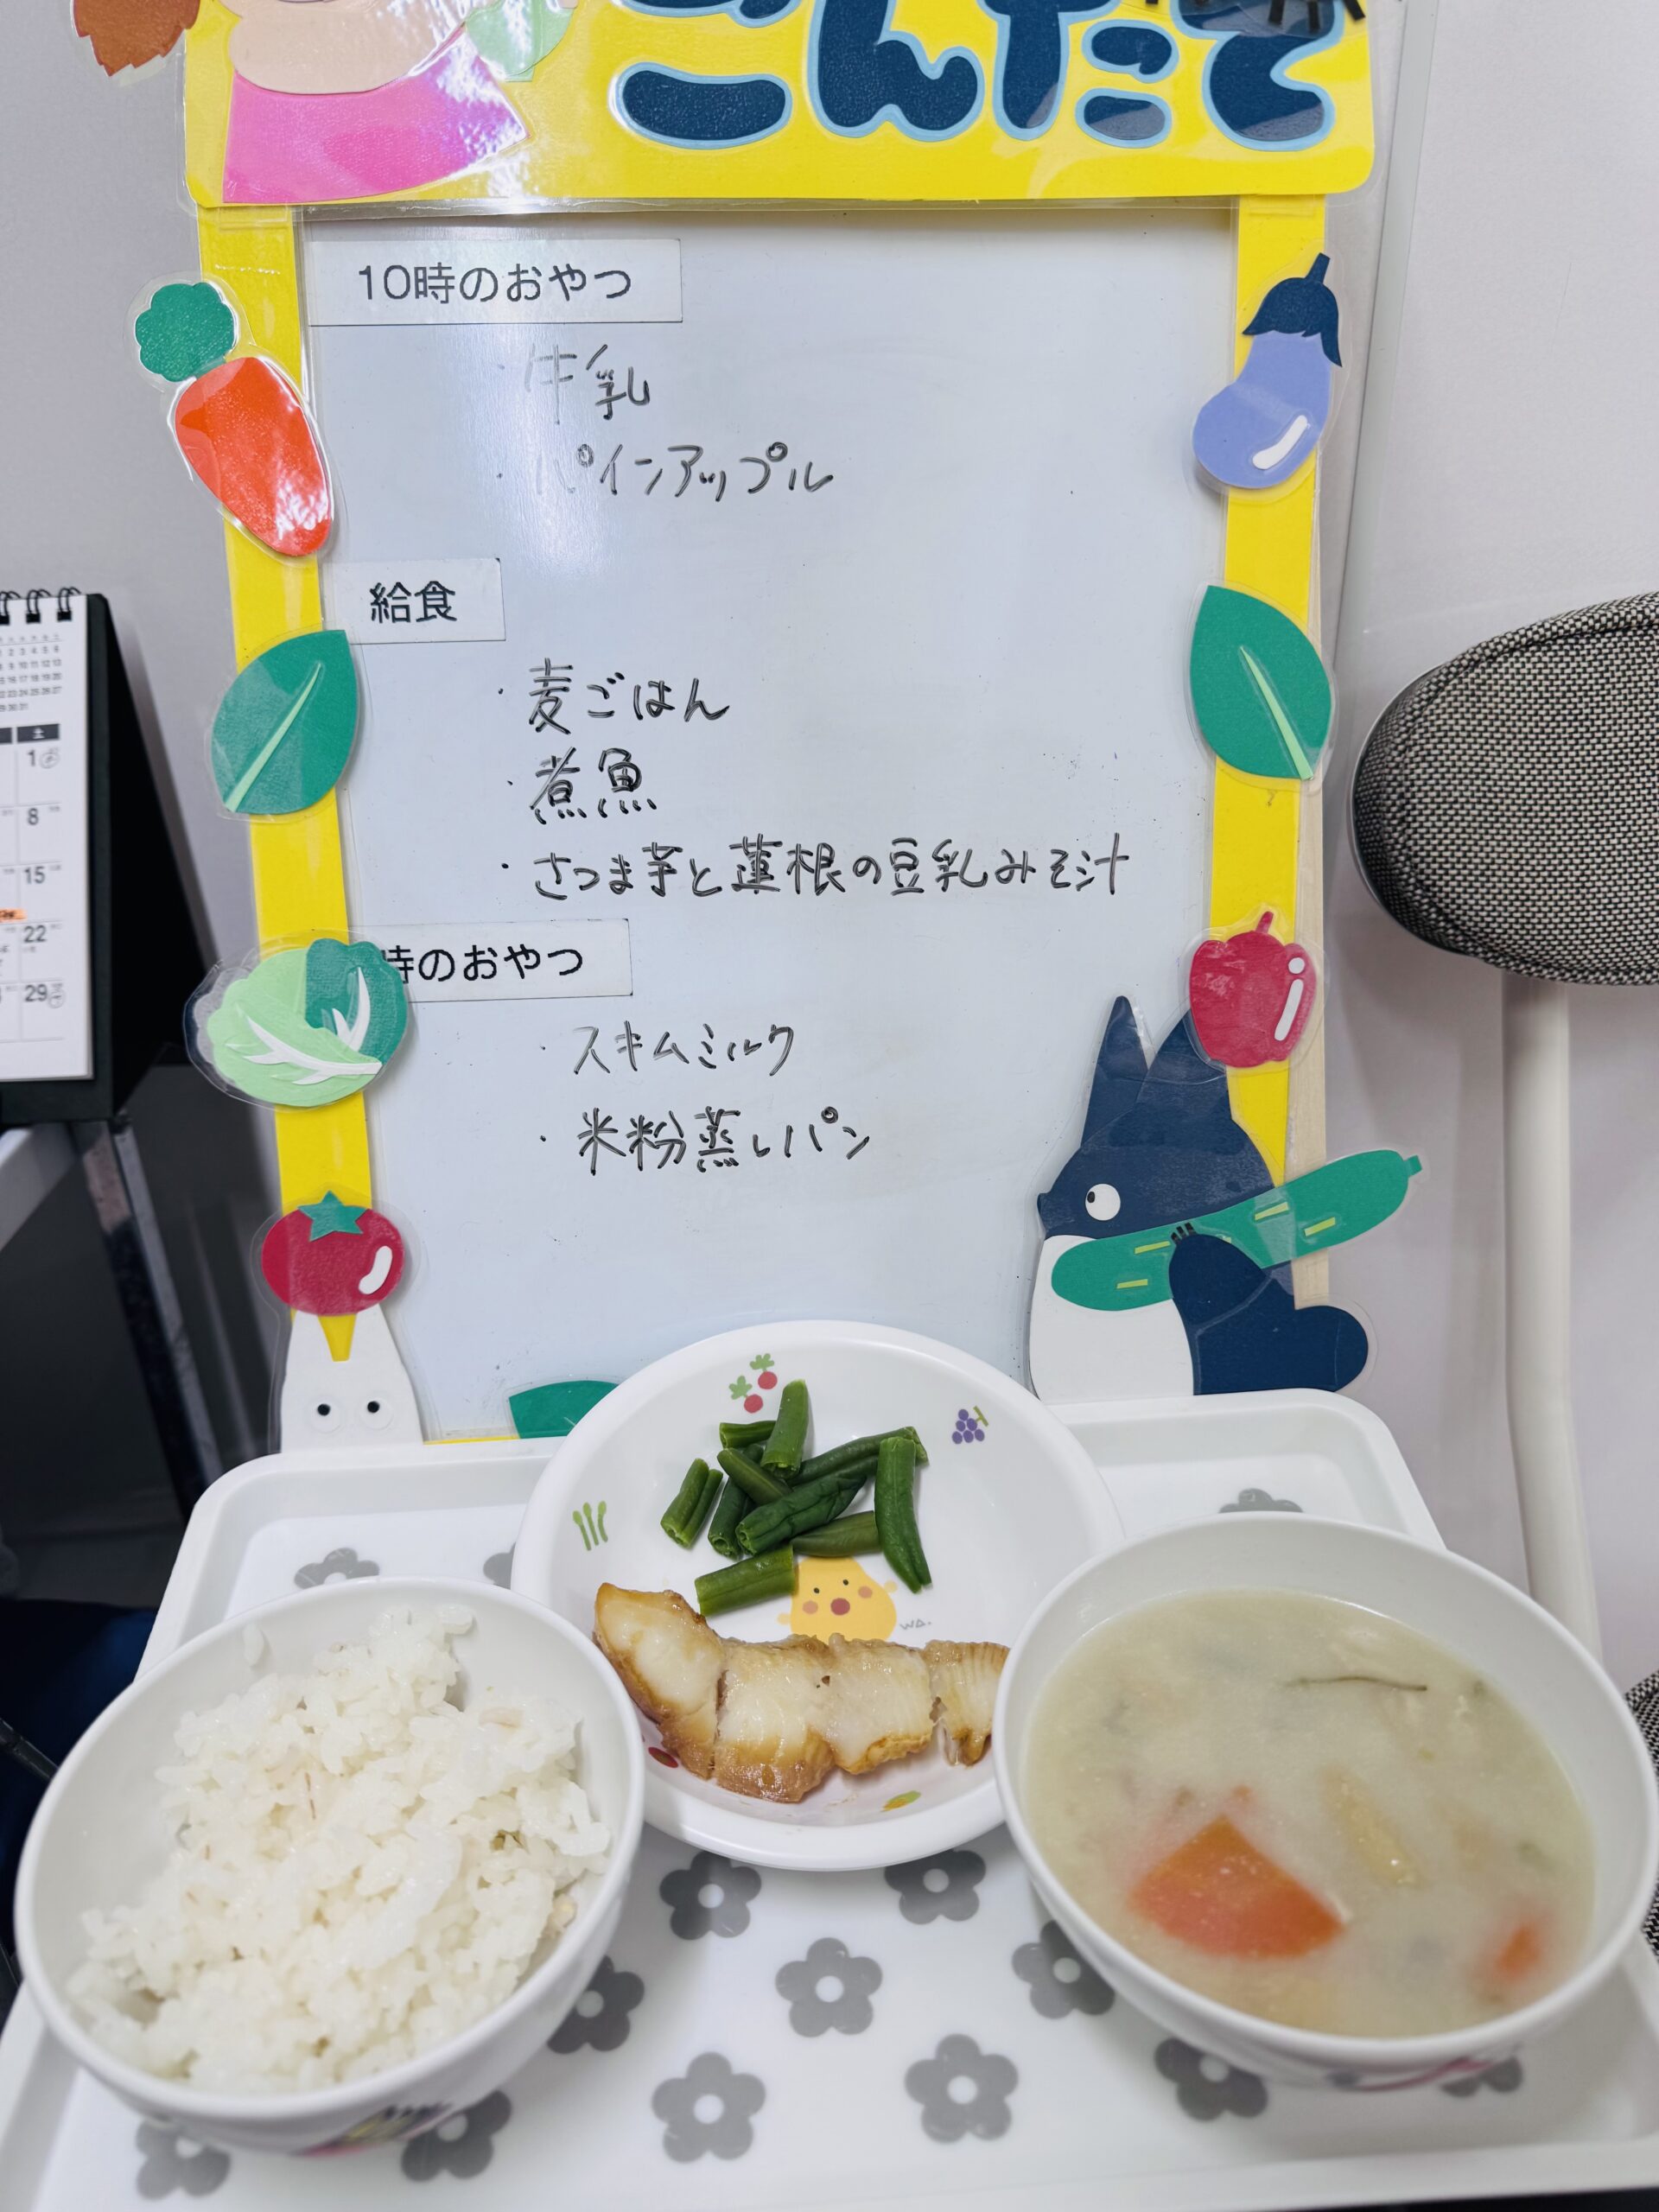 こんだて
10時のおやつ
・牛乳
・パインアップル
給食
・麦ごはん
・煮魚
・さつま芋と蓮根の豆乳みそ汁
時のおやつ
・スキムミルク
・米粉蒸しパン
土
1
8
15
22
29
WA.